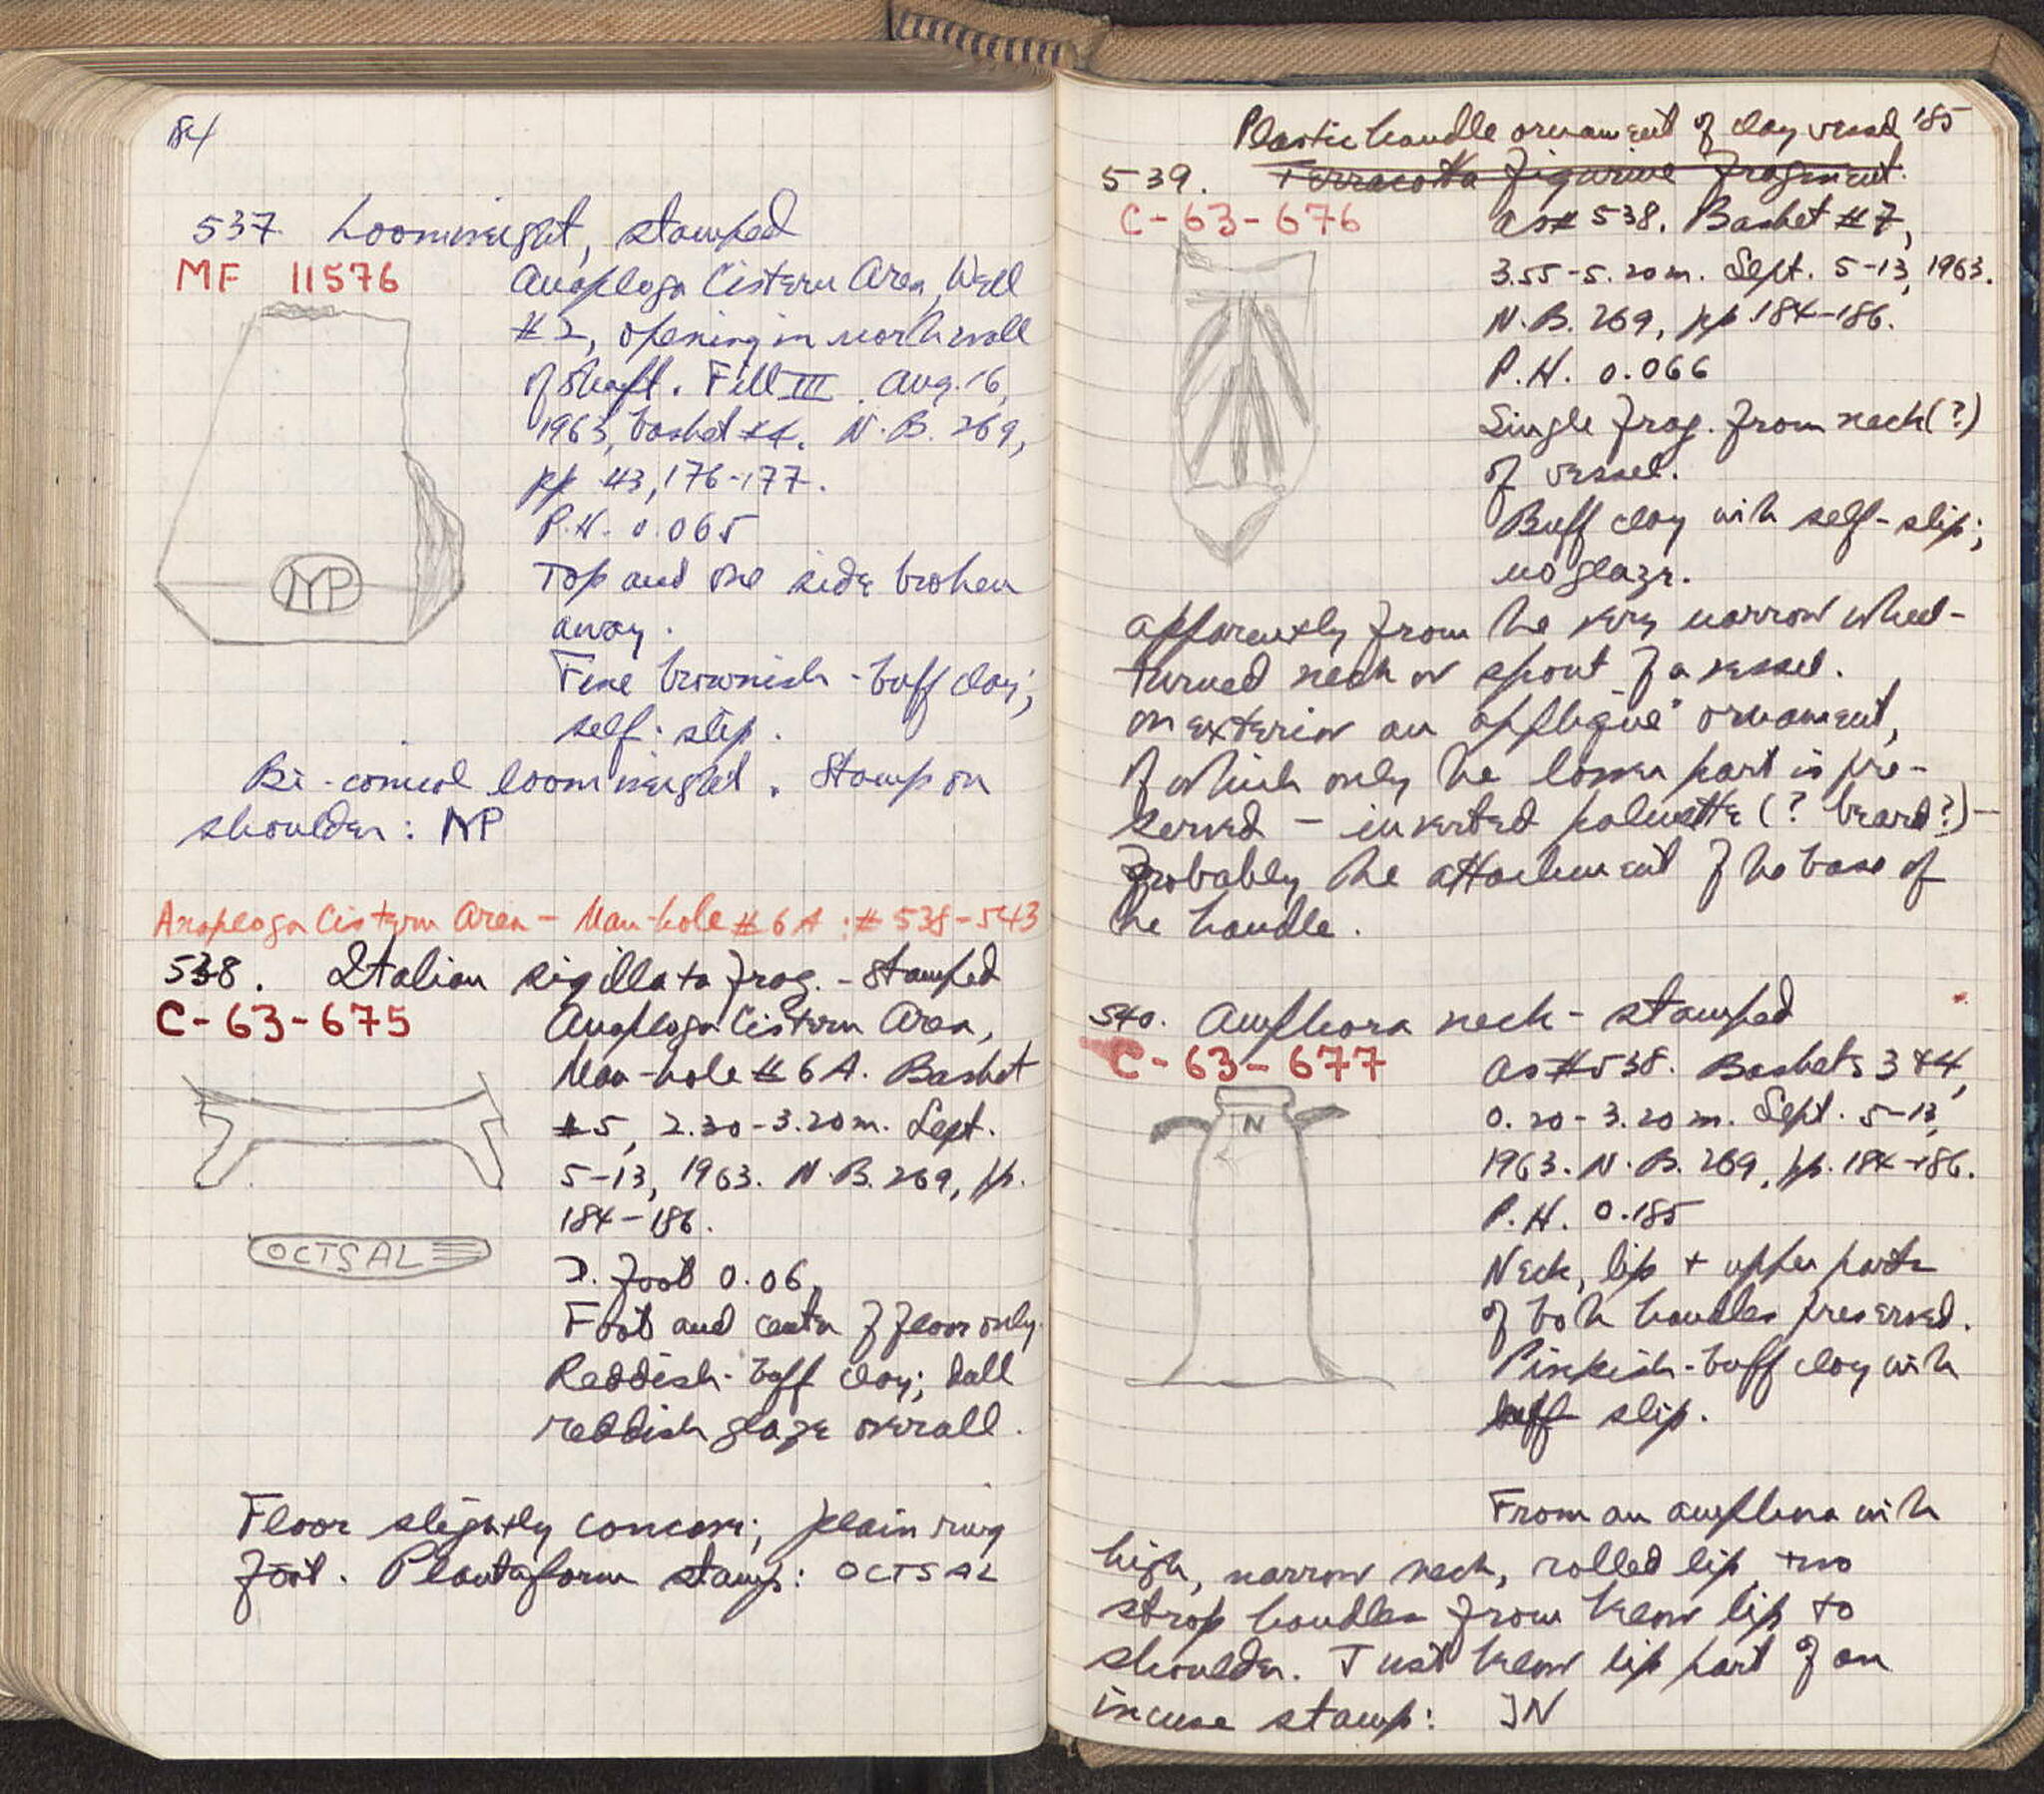 184
537. Loomweight, stamped
MF 11576
Anaploga Cistern Area, Well
#2, opening in north wall
of shaft. Fill III. Aug. 16,
1963, basket #4. N.B. 269,
pp. 43, 176-177.
P.H. 0.065
Top and one side broken
away.
Fine brownish-buff clay;
self-slip.
NP
Bi-conical loomweight. Stamp on
shoulder: NP
Anaploga Cistern Area - Man-hole #6A: #538-543
538. Italian sigillata frag. - Stamped
C-63-675
Anaploga Cistern Area,
Man-hole #6A. Basket
#5, 2.30-3.20m. Sept.
5-13, 1963. N.B. 269, pp.
184-186.
D. foot 0.06.
Foot and center of floor only.
Reddish-buff clay; dull
reddish glaze overall.
OCTSAL
Floor slightly concave; plain ring
foot. Plantaform stamp: OCTSAL
185
Plastic handle ornament of clay vessel
539. Terracotta figurine fragment.
C-63-676
As #538. Basket #7,
3.55-5.20m. Sept. 5-13, 1963.
N.B. 269, pp. 184-186.
P.H. 0.066
Single frag. from neck(?)
of vessel.
Buff clay with self-slip;
no glaze.
Apparently from the very narrow wheel-
turned neck or spout of a vessel.
On exterior an appliqué ornament,
of which only the lower part is pre-
served - inverted palmette (? beard?) -
probably the attachment of the base of
the handle.
540. Amphora neck - stamped
C-63-677
As #538. Baskets 3+4,
0.20-3.20m. Sept. 5-13,
1963. N.B. 269, pp. 184-186.
P.H. 0.185
Neck, lip + upper parts
of both handles preserved.
Pinkish-buff clay with
buff slip.
N
From an amphora with
high, narrow neck, rolled lip, two
strap handles from below lip to
shoulder. Just below lip part of an
incuse stamp: ]N